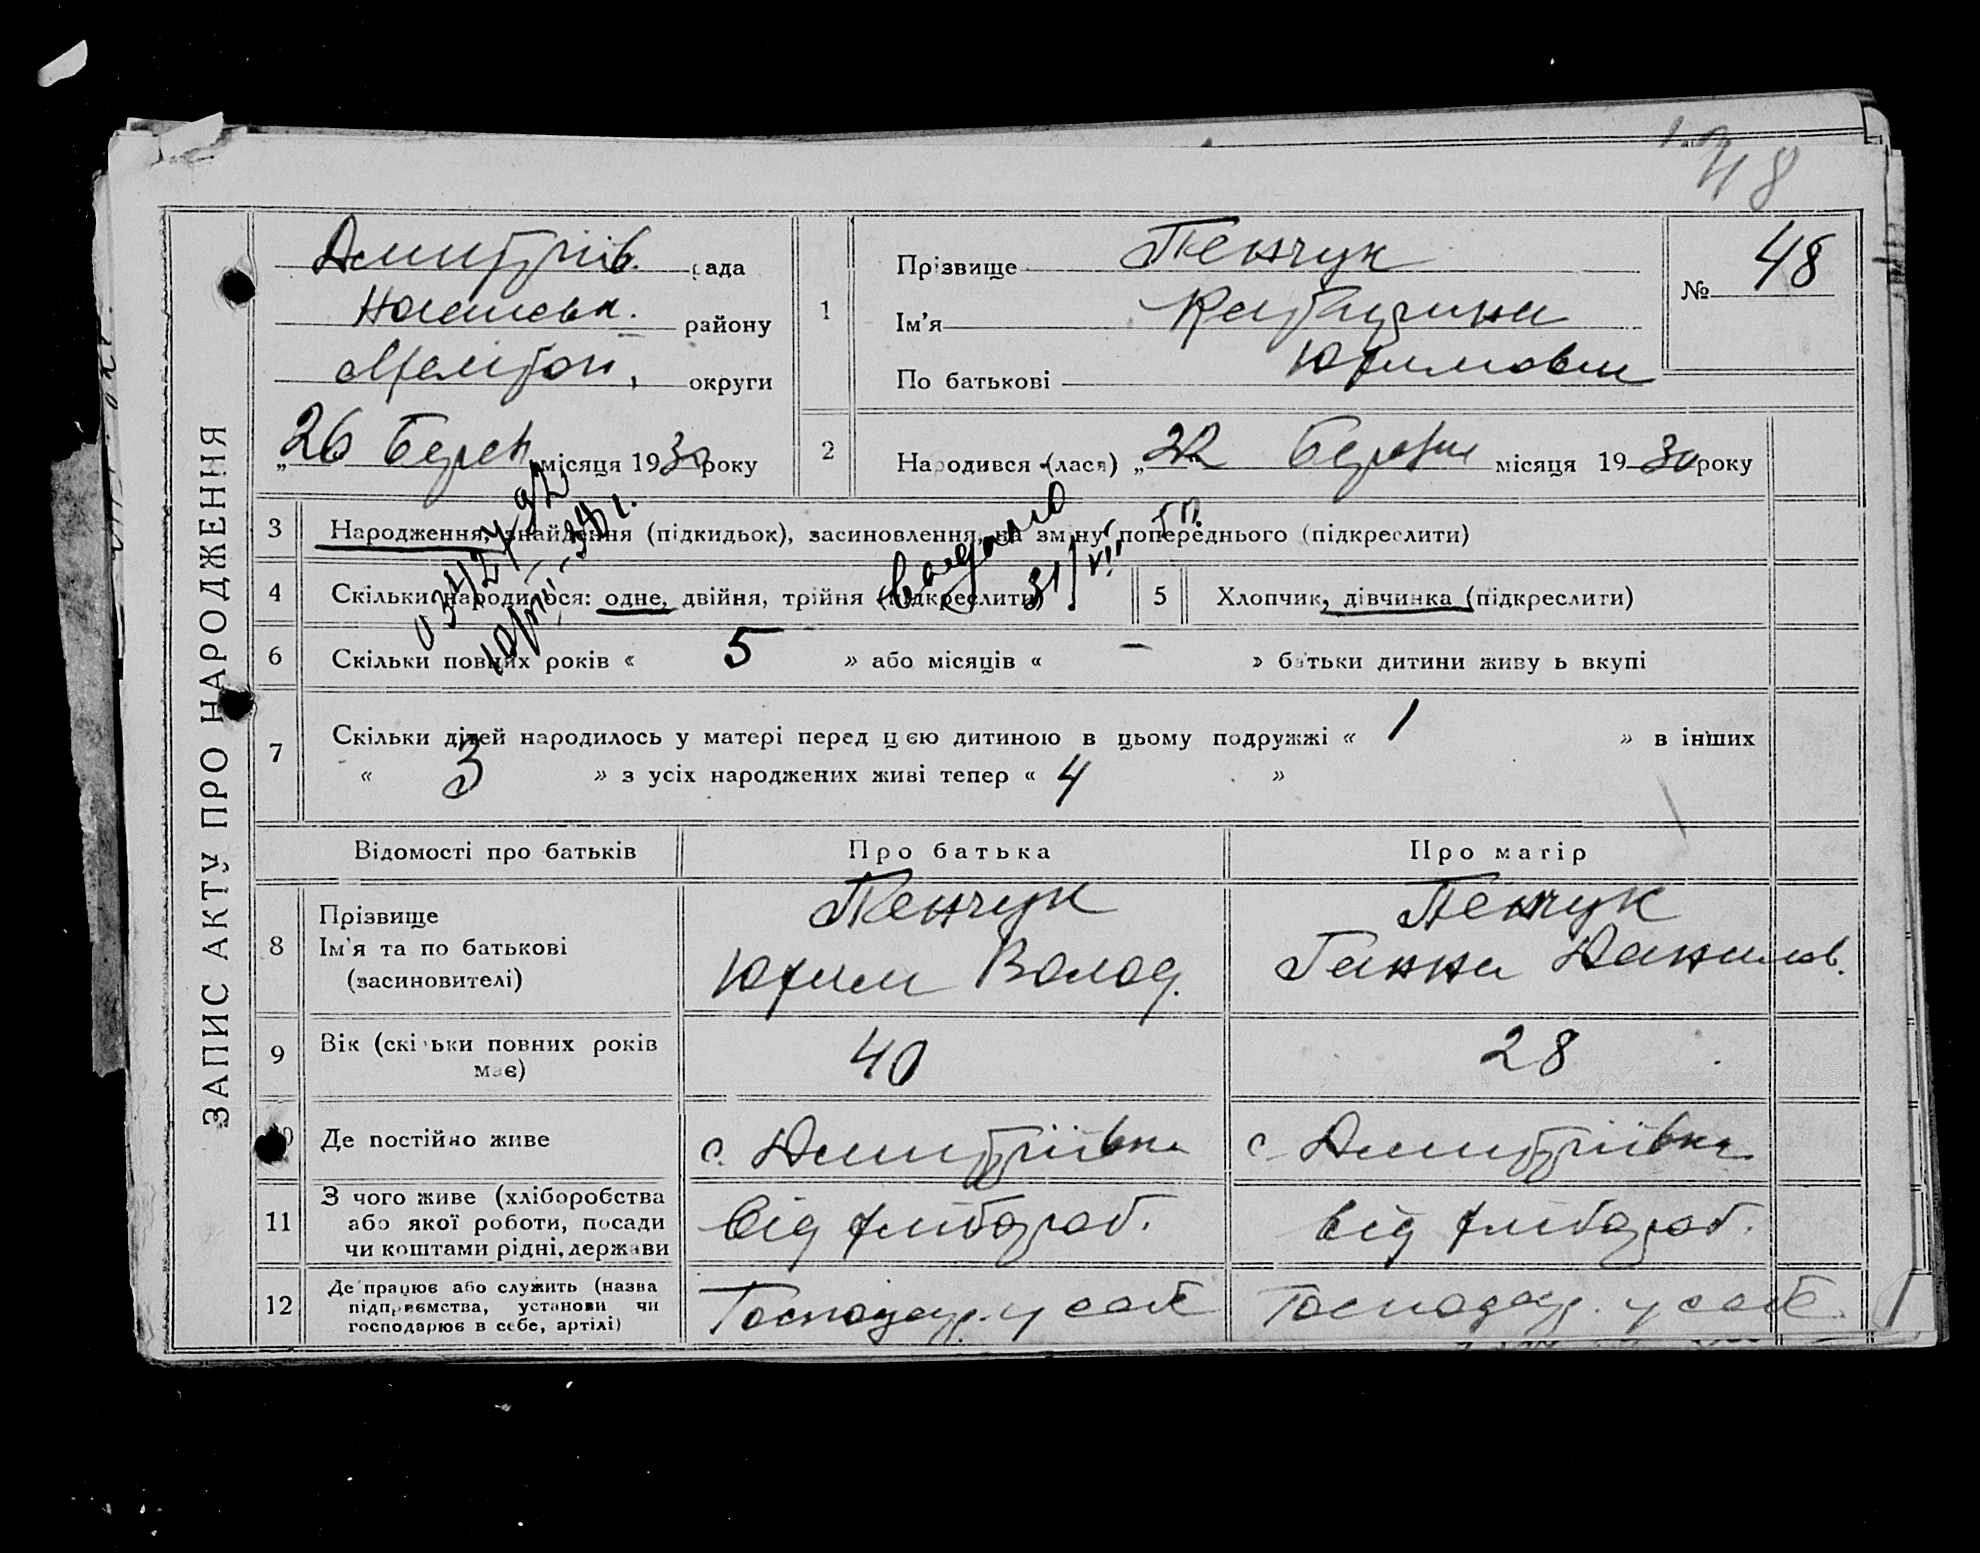 48
ЗАПИС АКТУ ПРО НАРОДЖЕННЯ
Дмитріїв. рада
району
Мелітоп, округи
„26 Берез місяця 1930 року
1
Прізвище Пенчук
Ім'я Катерина
По батькові Юхимовна
№ 48
2
Народився (лася) „22 Березня місяця 1930 року
3
Народження, знайдення (підкидьок), засиновлення, на зміну попереднього (підкреслити)
4
Скільки народилося: одне, двійня, трійня (підкреслити)
5
Хлопчик, дівчинка (підкреслити)
6
Скільки повних років « 5 » або місяців « – » батьки дитини живу ь вкупі
7
Скільки дітей народилось у матері перед цією дитиною в цьому подружжі « 1 » в інших
« 3 » з усіх народжених живі тепер « 4 »
Відомості про батьків
Про батька
Про матір
8
Прізвище
Ім'я та по батькові
(засиновителі)
Пенчук
Юхим Волод.
Пенчук
Ганна Данилов.
9
Вік (скільки повних років
має)
40
28
Де постійно живе
с. Дмитріївка
с. Дмитріївка
11
З чого живе (хліборобства
або якої роботи, посади
чи коштами рідні, держави
від хлібороб.
від хлібороб.
12
Де працює або служить (назва
підприємства, установи чи
господарює в себе, артілі)
Господар. у себе
Господар. у себе